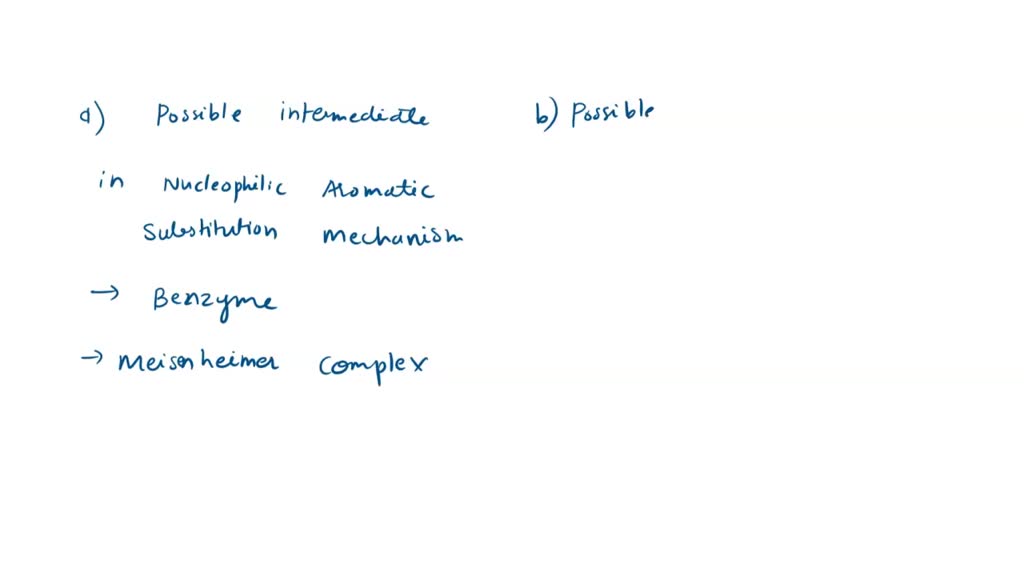 a) Possible intermediate
b) Possible
in Nucleophilic Aromatic
Substitution mechanism
→ Benzyme
→ Meisenheimer Complex